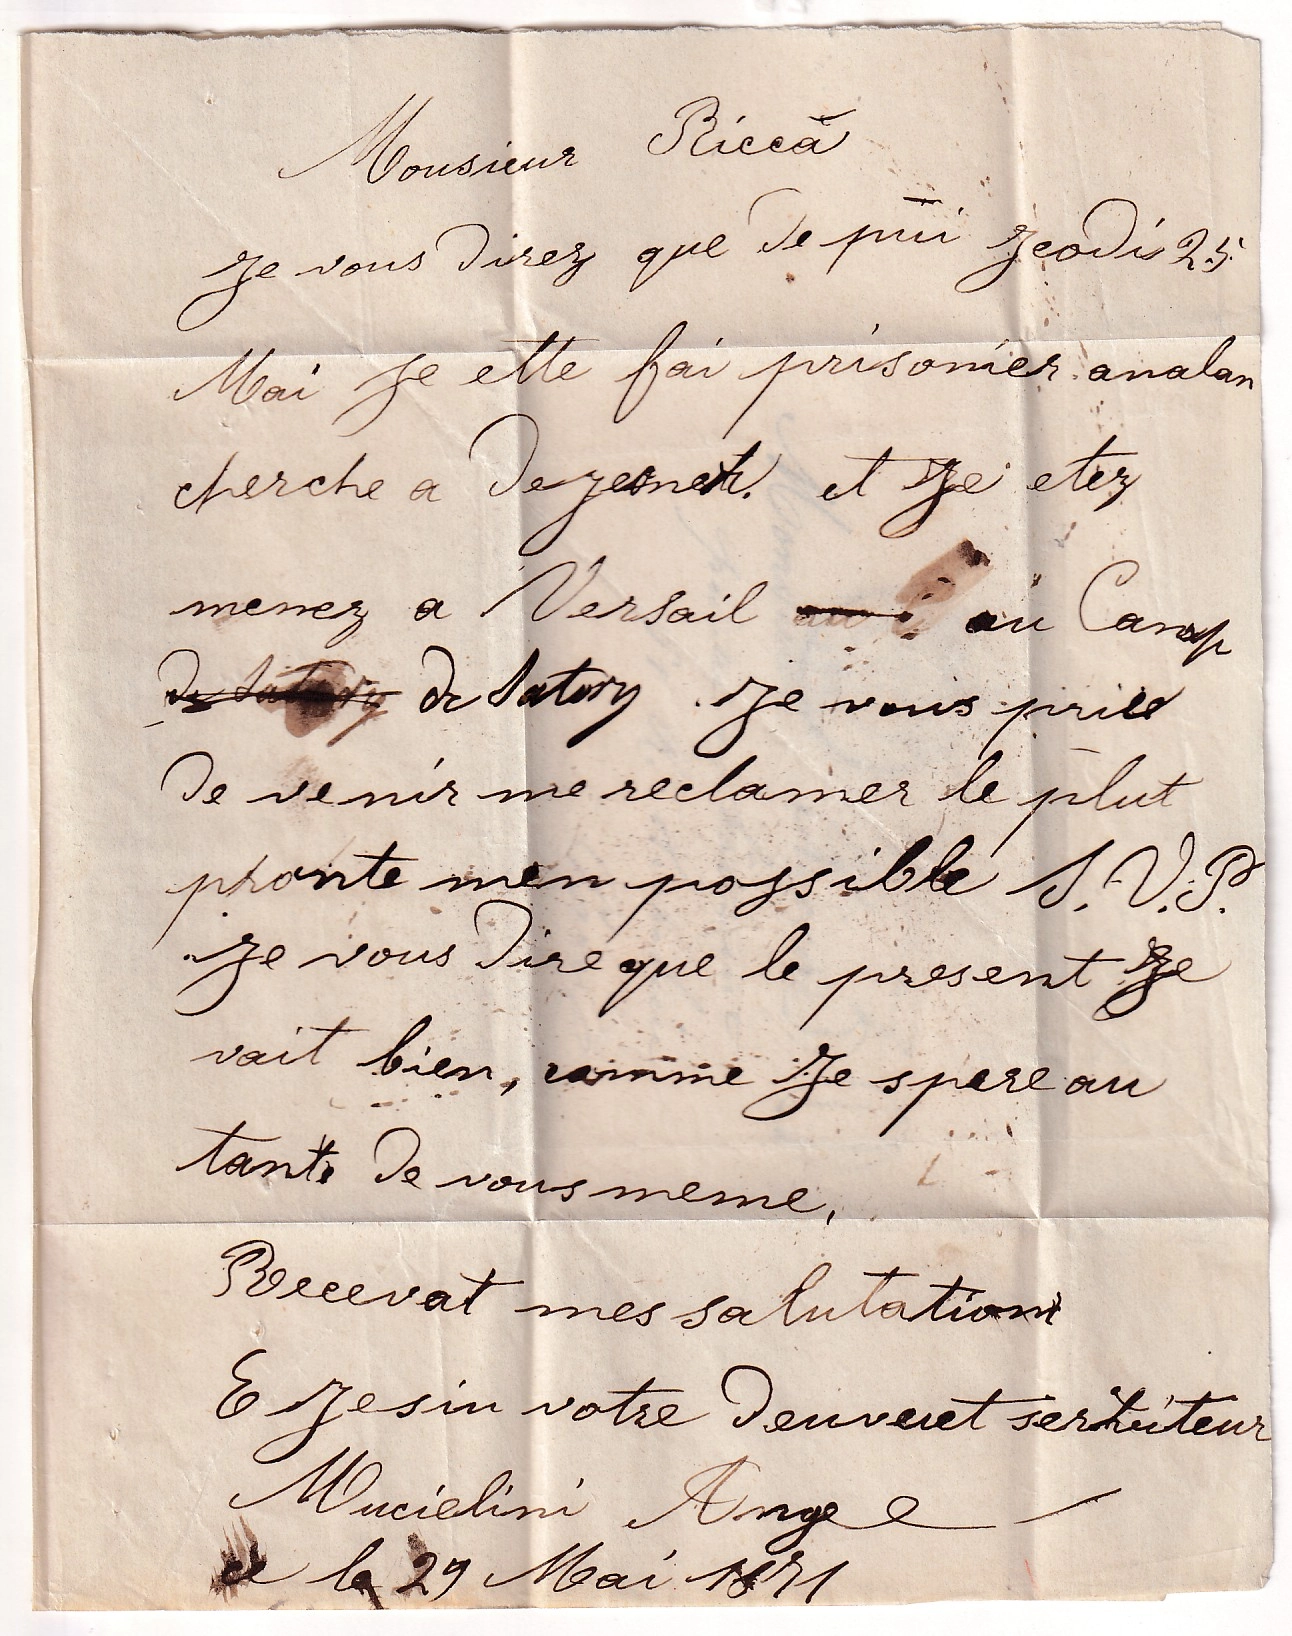 Monsieur Riccá
Je vous direz que de pui Jeodis 25
Mai Je ette fai prisonier analan
cherche a dejeonet. et Je etez
menez a Versail au au Camp
de Satory de Satory Je vous priee
de venir me reclamer le plut
pronte men possible S.V.P.
Je vous dire que le present Je
vait bien, comme Je spere au
tante de vous meme,
Recevat mes salutations
E Je sin votre serviteur
Mucielini Ange
ce le 29 Mai 1871